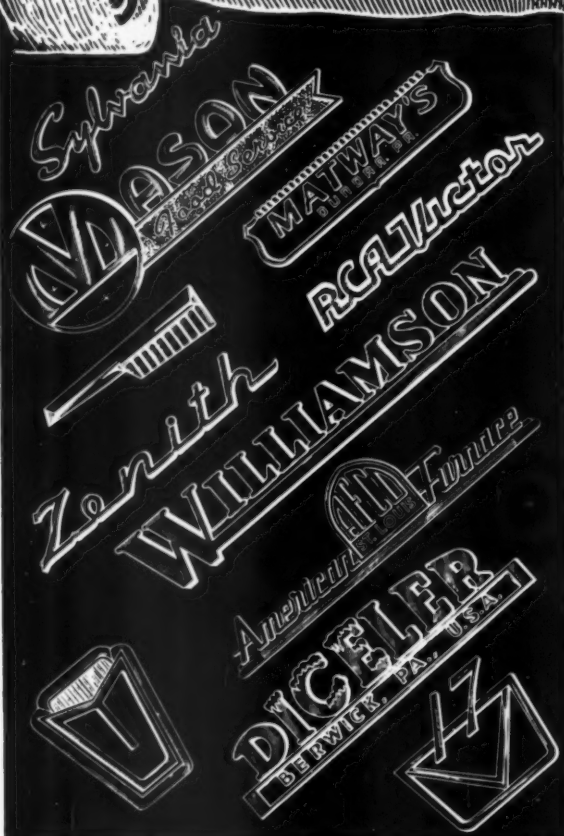 Sylvania
MASON
Food Service
MATWAY'S
RCA Victor
Zenith
WILLIAMSON
AFCO
ST. LOUIS
American Furnace
DICELER
BERWICK, PA., U.S.A.
17